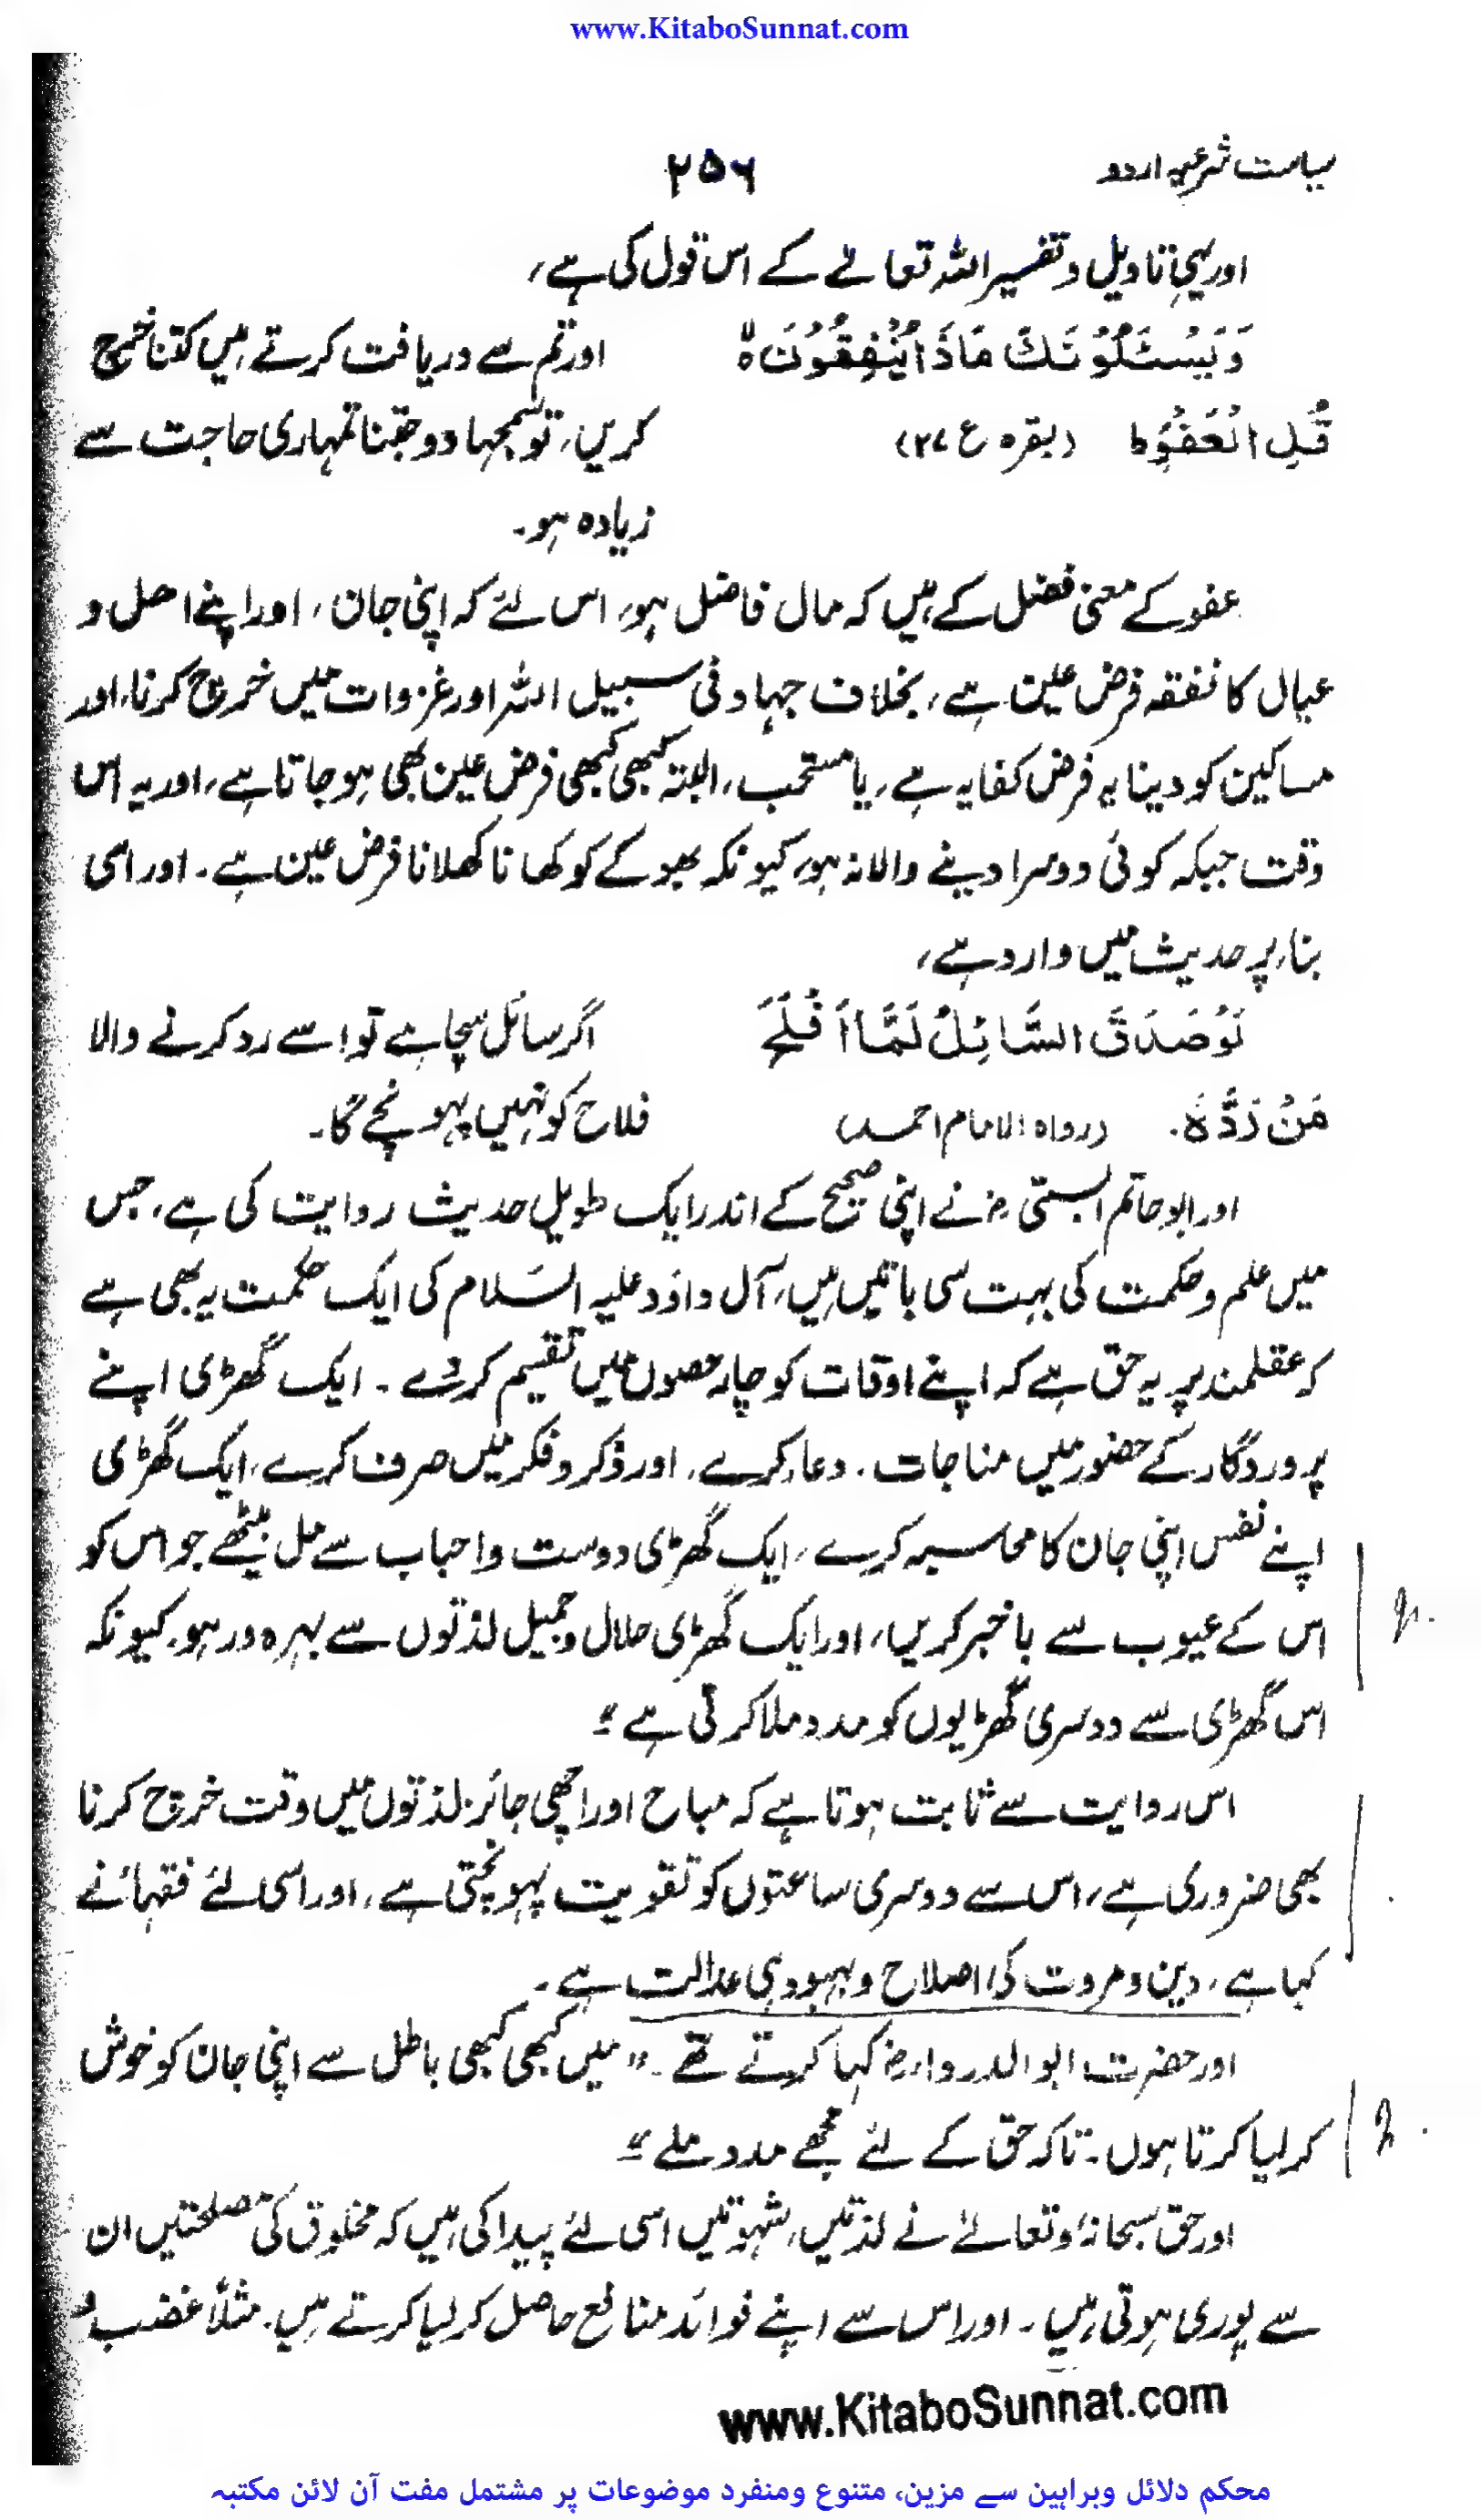 www.KitaboSunnat.com
سیاست شرعیہ اردو ۲۵۶
اور یہی تاویل و تفسیر اللہ تعالےٰ کے اس قول کی ہے،
وَيَسْئَلُوْنَكَ مَاذَا يُنْفِقُوْنَ ہ اور تم سے دریافت کرتے ہیں کتنا خرچ
قُلِ الْعَفْوَ ط (بقرہ ع ۲۷) کریں، تو سمجہا دو جتنا تمہاری حاجت سے
زیادہ ہو۔
عفو کے معنیٰ فضل کے ہیں کہ مال فاضل ہو، اس لئے کہ اپنی جان، اور اپنے اھل و
عیال کا نفقہ فرض عین ہے، بخلاف جہاد فی سبیل اللہ اور غزوات میں خرچ کرنا، اور
مساکین کو دینا یہ فرض کفایہ ہے، یا مستحب، البتہ کبھی کبھی فرض عین بھی ہو جاتا ہے، اور یہ اس
وقت جبکہ کوئی دوسرا دینے والا نہ ہو، کیونکہ بھوکے کو کھانا کھلانا فرض عین ہے۔ اور اسی
بناء پر حدیث میں وارد ہے،
لَوْ صَدَقَ السَّائِلُ لَمَّا اَفْلَحَ اگر سائل سچا ہے تو اسے رد کرنے والا
مَنْ رَدَّهٗ۔ (رواہ الامام احمد) فلاح کو نہیں پہونچے گا۔
اور ابو حاتم البستی رح نے اپنی صحیح کے اندر ایک طویل حدیث روایت کی ہے، جس
میں علم و حکمت کی بہت سی باتیں ہیں، آل داؤد علیہ السلام کی ایک حکمت یہ بھی ہے
کہ عقلمند پر یہ حق ہے کہ اپنے اوقات کو چار حصوں میں تقسیم کر دے۔ ایک گھڑی اپنے
پروردگار کے حضور میں مناجات، دعاء کرے، اور ذکر و فکر میں صرف کرے، ایک گھڑی
اپنے نفس اپنی جان کا محاسبہ کرے، ایک گھڑی دوست و احباب سے مل بیٹھے جو اس کو
اس کے عیوب سے باخبر کریں، اور ایک گھڑی حلال و جمیل لذتوں سے بہرہ ور ہو، کیونکہ
اس گھڑی سے دوسری گھڑیوں کو مدد ملا کرتی ہے"
اس روایت سے ثابت ہوتا ہے کہ مباح اور اچھی جائز لذتوں میں وقت خرچ کرنا
بھی ضروری ہے، اس سے دوسری ساعتوں کو تقویت پہونچتی ہے، اور اسی لئے فقہاء نے
کہا ہے، دین و مروت کی اصلاح و بہبود ہی عدالت ہے۔
اور حضرت ابو الدرداء رض کہا کرتے تھے۔ "میں کبھی کبھی باطل سے اپنی جان کو خوش
کر لیا کرتا ہوں۔ تاکہ حق کے لئے مجھے مدد ملے"
اور حق سبحانہٗ و تعالےٰ نے لذتیں، شہوتیں اسی لئے پیدا کی ہیں کہ مخلوق کی مصلحتیں ان
سے پوری ہوتی ہیں۔ اور اس سے اپنے فوائد منافع حاصل کر لیا کرتے ہیں۔ مثلاً غضب و
www.KitaboSunnat.com
محکم دلائل وبراہین سے مزین، متنوع ومنفرد موضوعات پر مشتمل مفت آن لائن مکتبہ